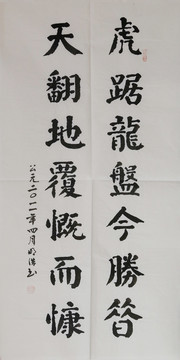 虎踞龍盤今勝昔
天翻地覆慨而慷
公元二〇一一年四月